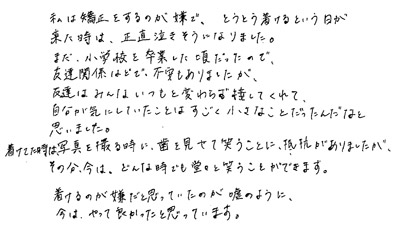 私は矯正をするのが嫌で、とうとう着けるという日が
来た時は、正直泣きそうになりました。
まだ、小学校を卒業した頃だったので、
友達関係などで、不安もありましたが、
友達はみんないつもと変わらず接してくれて、
自分が気にしていたことはすごく小さなことだったんだなと
思いました。
着けてた時は、写真を撮る時に、歯を見せて笑うことに、抵抗がありましたが、
その分、今は、どんな時でも堂々と笑うことができます。
着けるのが嫌だと思っていたのが嘘のように、
今は、やって良かったと思っています。